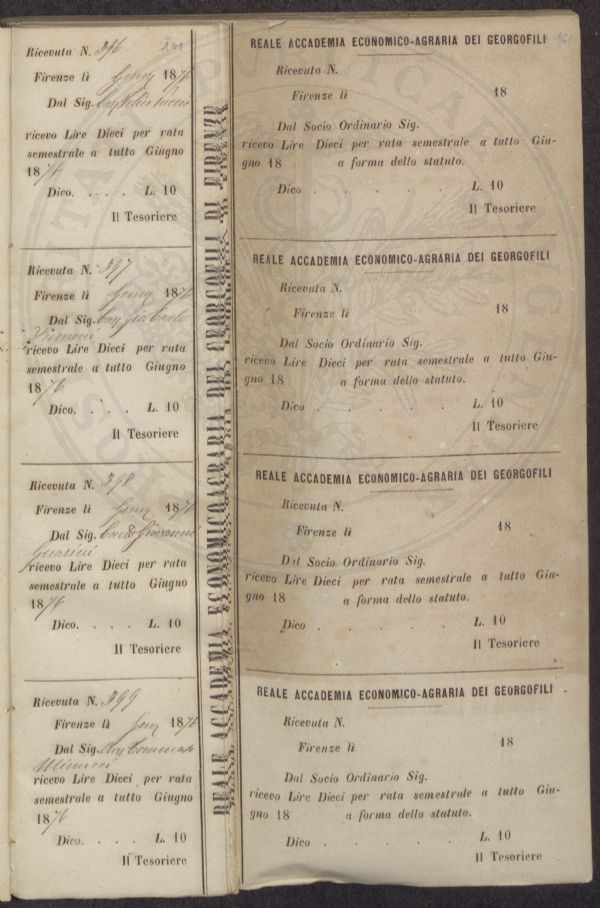 Ricevuta N. 396
Firenze li 1876
Dal Sig.
ricevo Lire Dieci per rata
semestrale a tutto Giugno
1876
Dico. . . . L. 10
Il Tesoriere
Ricevuta N. 397
Firenze li 1876
Dal Sig.
ricevo Lire Dieci per rata
semestrale a tutto Giugno
1876
Dico. . . . L. 10
Il Tesoriere
Ricevuta N. 398
Firenze li 1876
Dal Sig. Giovanni
Guarini
ricevo Lire Dieci per rata
semestrale a tutto Giugno
1876
Dico. . . . L. 10
Il Tesoriere
Ricevuta N. 399
Firenze li 1876
Dal Sig.
Minucci
ricevo Lire Dieci per rata
semestrale a tutto Giugno
1876
Dico. . . . L. 10
Il Tesoriere
REALE ACCADEMIA ECONOMICO AGRARIA DEI GEORGOFILI DI FIRENZE
REALE ACCADEMIA ECONOMICO-AGRARIA DEI GEORGOFILI
Ricevuta N.
Firenze li 18
Dal Socio Ordinario Sig.
ricevo Lire Dieci per rata semestrale a tutto Giu-
gno 18 a forma dello statuto.
Dico . . . . . L. 10
Il Tesoriere
REALE ACCADEMIA ECONOMICO-AGRARIA DEI GEORGOFILI
Ricevuta N.
Firenze li 18
Dal Socio Ordinario Sig.
ricevo Lire Dieci per rata semestrale a tutto Giu-
gno 18 a forma dello statuto.
Dico . . . . . L. 10
Il Tesoriere
REALE ACCADEMIA ECONOMICO-AGRARIA DEI GEORGOFILI
Ricevuta N.
Firenze li 18
Dal Socio Ordinario Sig.
ricevo Lire Dieci per rata semestrale a tutto Giu-
gno 18 a forma dello statuto.
Dico . . . . . L. 10
Il Tesoriere
REALE ACCADEMIA ECONOMICO-AGRARIA DEI GEORGOFILI
Ricevuta N.
Firenze li 18
Dal Socio Ordinario Sig.
ricevo Lire Dieci per rata semestrale a tutto Giu-
gno 18 a forma dello statuto.
Dico . . . . . L. 10
Il Tesoriere